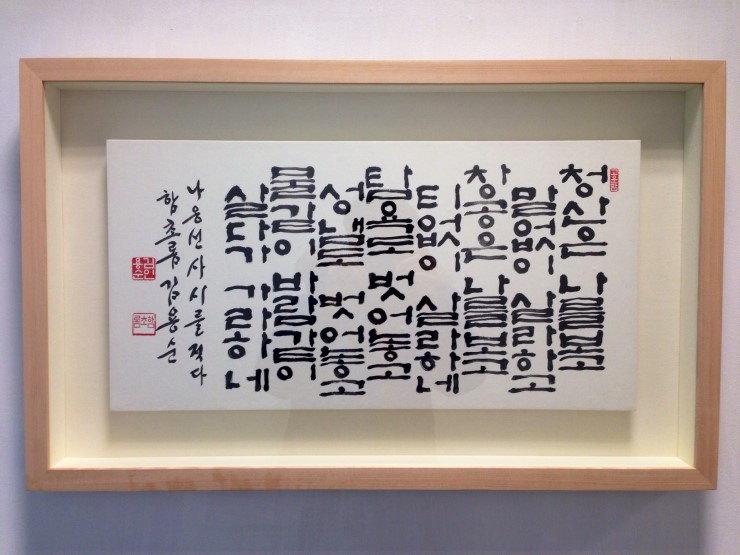 청산은 나를보고
말업시 살라하고
창공은 나를보고
티업시 살라하네
탐욕도 벗어놓고
성냄도 벗어놓고
물같이 바람같이
살다가 가라하네
나옹선사 시를 적다
함초롬 김용순